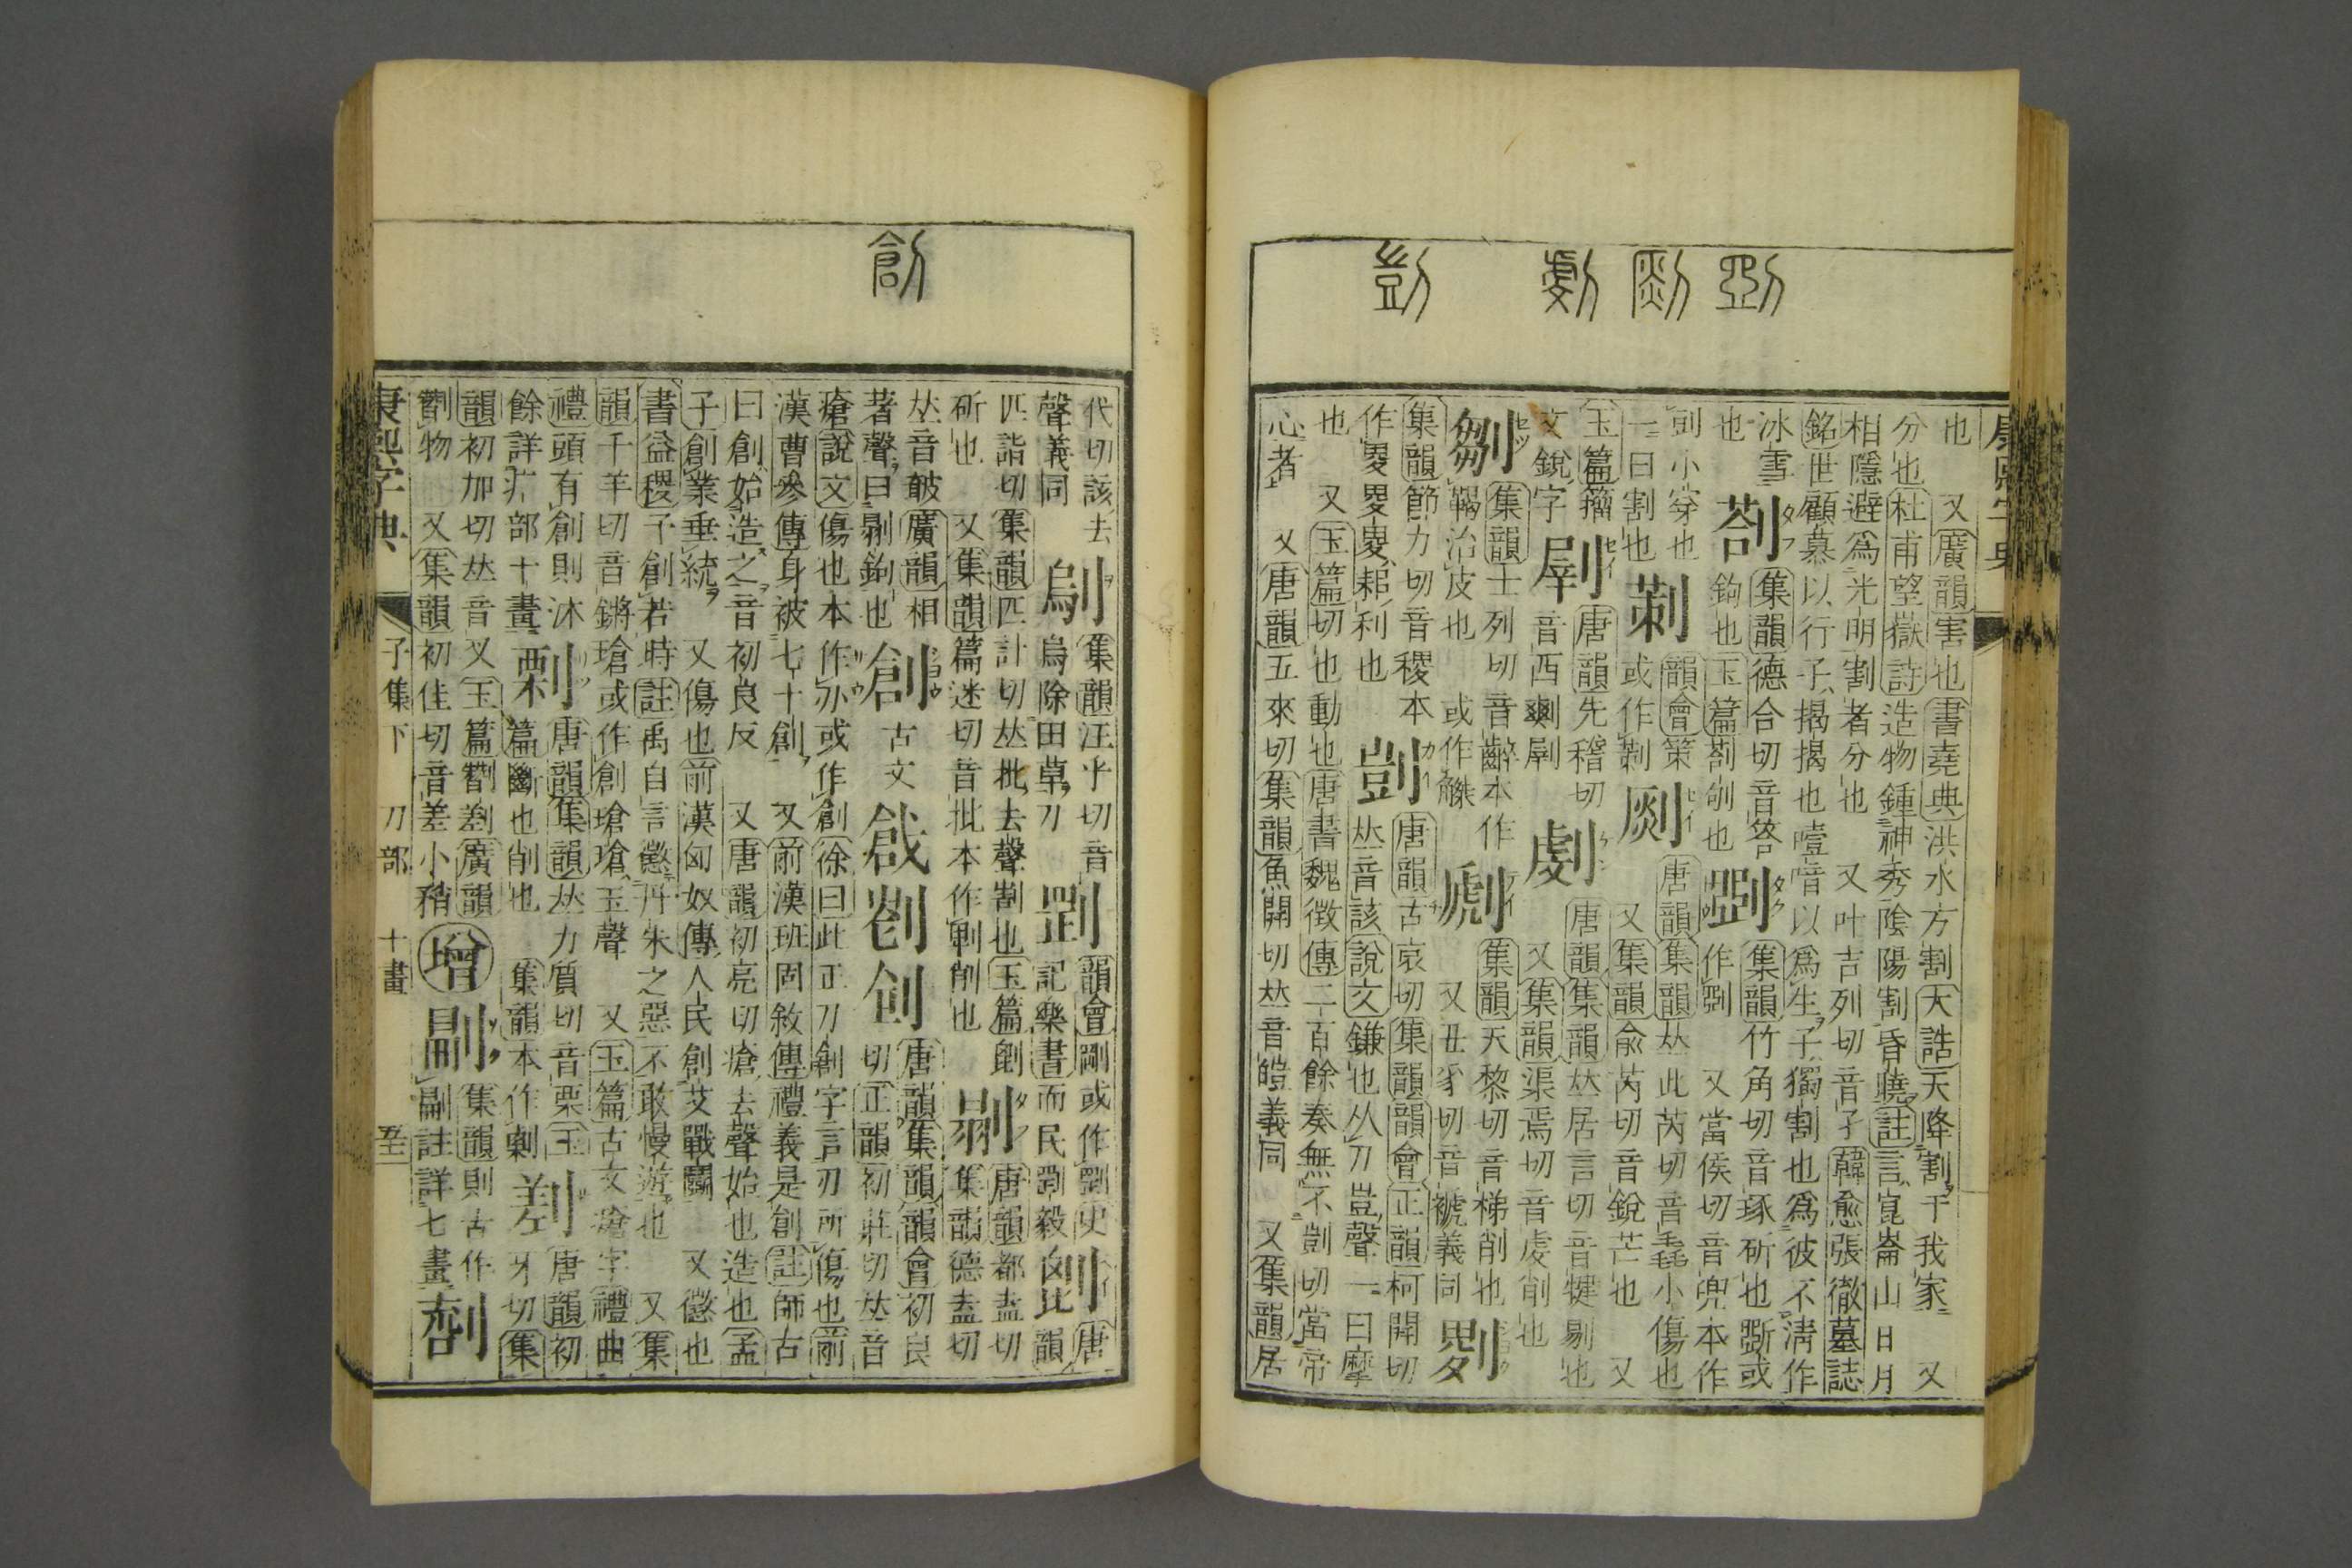 康熙字典
也　又廣韻害也書堯典洪水方割大誥天降割于我家　又
分也杜甫望嶽詩造物鍾神秀陰陽割昏曉註言崑崙山日月
相隱避爲光明割者分也　又叶吉列切音孑韓愈張徹墓誌
銘世顧慕以行子揭揭也噎喑以爲生子獨割也爲彼不淸作
冰雪　劄　集韻德合切音答　集韻竹角切音琢斫也斲或
也　鉤也玉篇劄也　作　又當侯切音兜本作
剅小穿也　韻會策　唐韻集韻𠀤此芮切音毳小傷也
一曰割也　或作　又集韻兪芮切音銳芒也　又
玉篇籀　唐韻先稽切　唐韻集韻𠀤居言切音犍剔也
文銳字　音西　又集韻渠焉切音虔削也
集韻士列切音本作　集韻天黎切音梯削也
治皮也　或作　又丑豸切音褫義同
集韻節力切音稷本　剴　唐韻古哀切集韻韻會正韻柯開切
作畟畟畟耜利也　𠀤音該說文鎌也从刀豈聲一曰摩
也　又玉篇切也動也唐書魏徵傳二百餘奏無不剴切當帝
心者　又唐韻五來切集韻魚開切𠀤音皚義同　又集韻居
代切該去　集韻汪乎切音　韻會剛或作㓻史　唐
聲義同　烏除田草刀　記樂書而民㓻毅　韻
匹詣切集韻匹計切𠀤批去聲割也玉篇　唐韻都盍切
斫也　又集韻篇迷切音批本作削也　集韻德盍切
𠀤音皵廣韻相　唐韻集韻韻會初良
著聲曰剔鉤也　創　古文　戧　刱　切正韻初莊切𠀤音
瘡說文傷也本作刅或作創徐曰此正刀創字言刃所傷也前
漢曹參傳身被七十創　又前漢班固敘傳禮義是創註師古
曰創始造之音初良反　又唐韻初亮切瘡去聲始也造也孟
子創業垂統　又傷也前漢匈奴傳人民創艾戰鬭　又懲也
書益稷予創若時註禹自言懲丹朱之惡不敢慢遊也　又集
韻千羊切音鏘瑲或作創瑲瑲玉聲　又玉篇古文瘡字禮曲
禮頭有創則沐　唐韻集韻𠀤力質切音栗玉　唐韻初
餘詳疒部十畫　篇斷也削也　集韻本作　牙切集
韻初加切𠀤音叉玉篇廣韻　集韻則古作
物　又集韻初佳切音差小稍　增　副註詳七畫
康熙字典　子集下　刀部　十畫